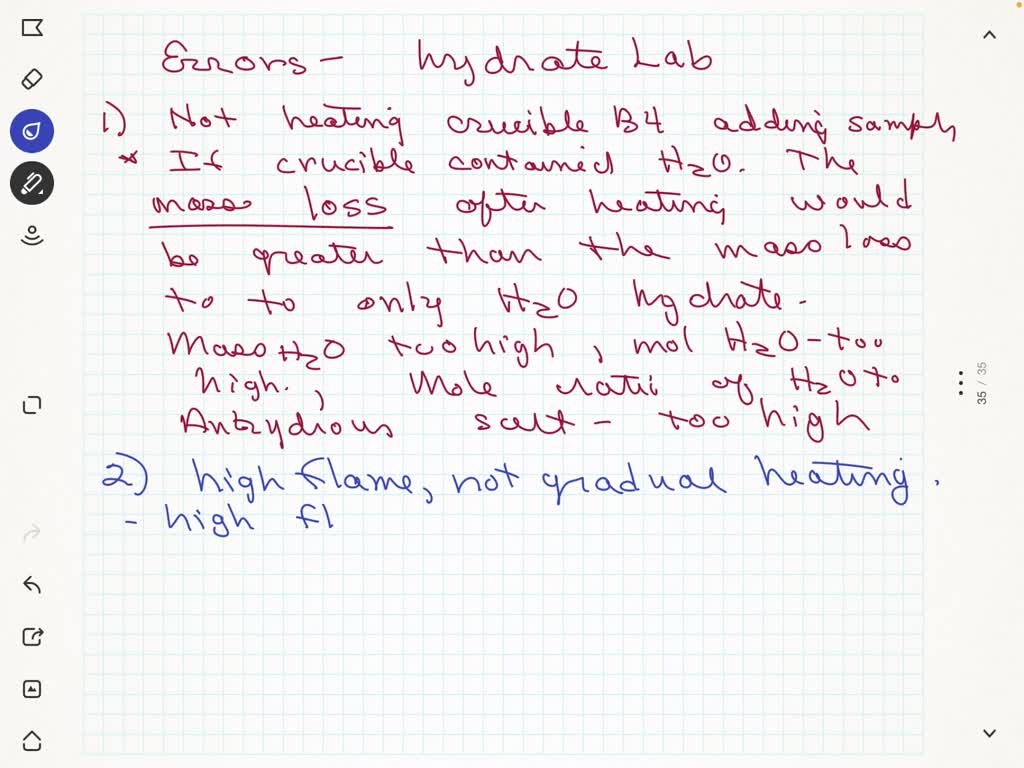 Errors - hydrate Lab
1) Not heating crucible B4 adding sample
* If crucible contained H₂O. The
mass loss after heating would
be greater than the mass loss
to to only H₂O hydrate.
Mass H₂O too high, mol H₂O - too
high., Mole ratio of H₂O to
Anhydrous salt - too high
2) high flame, not gradual heating.
- high fl
35 / 35